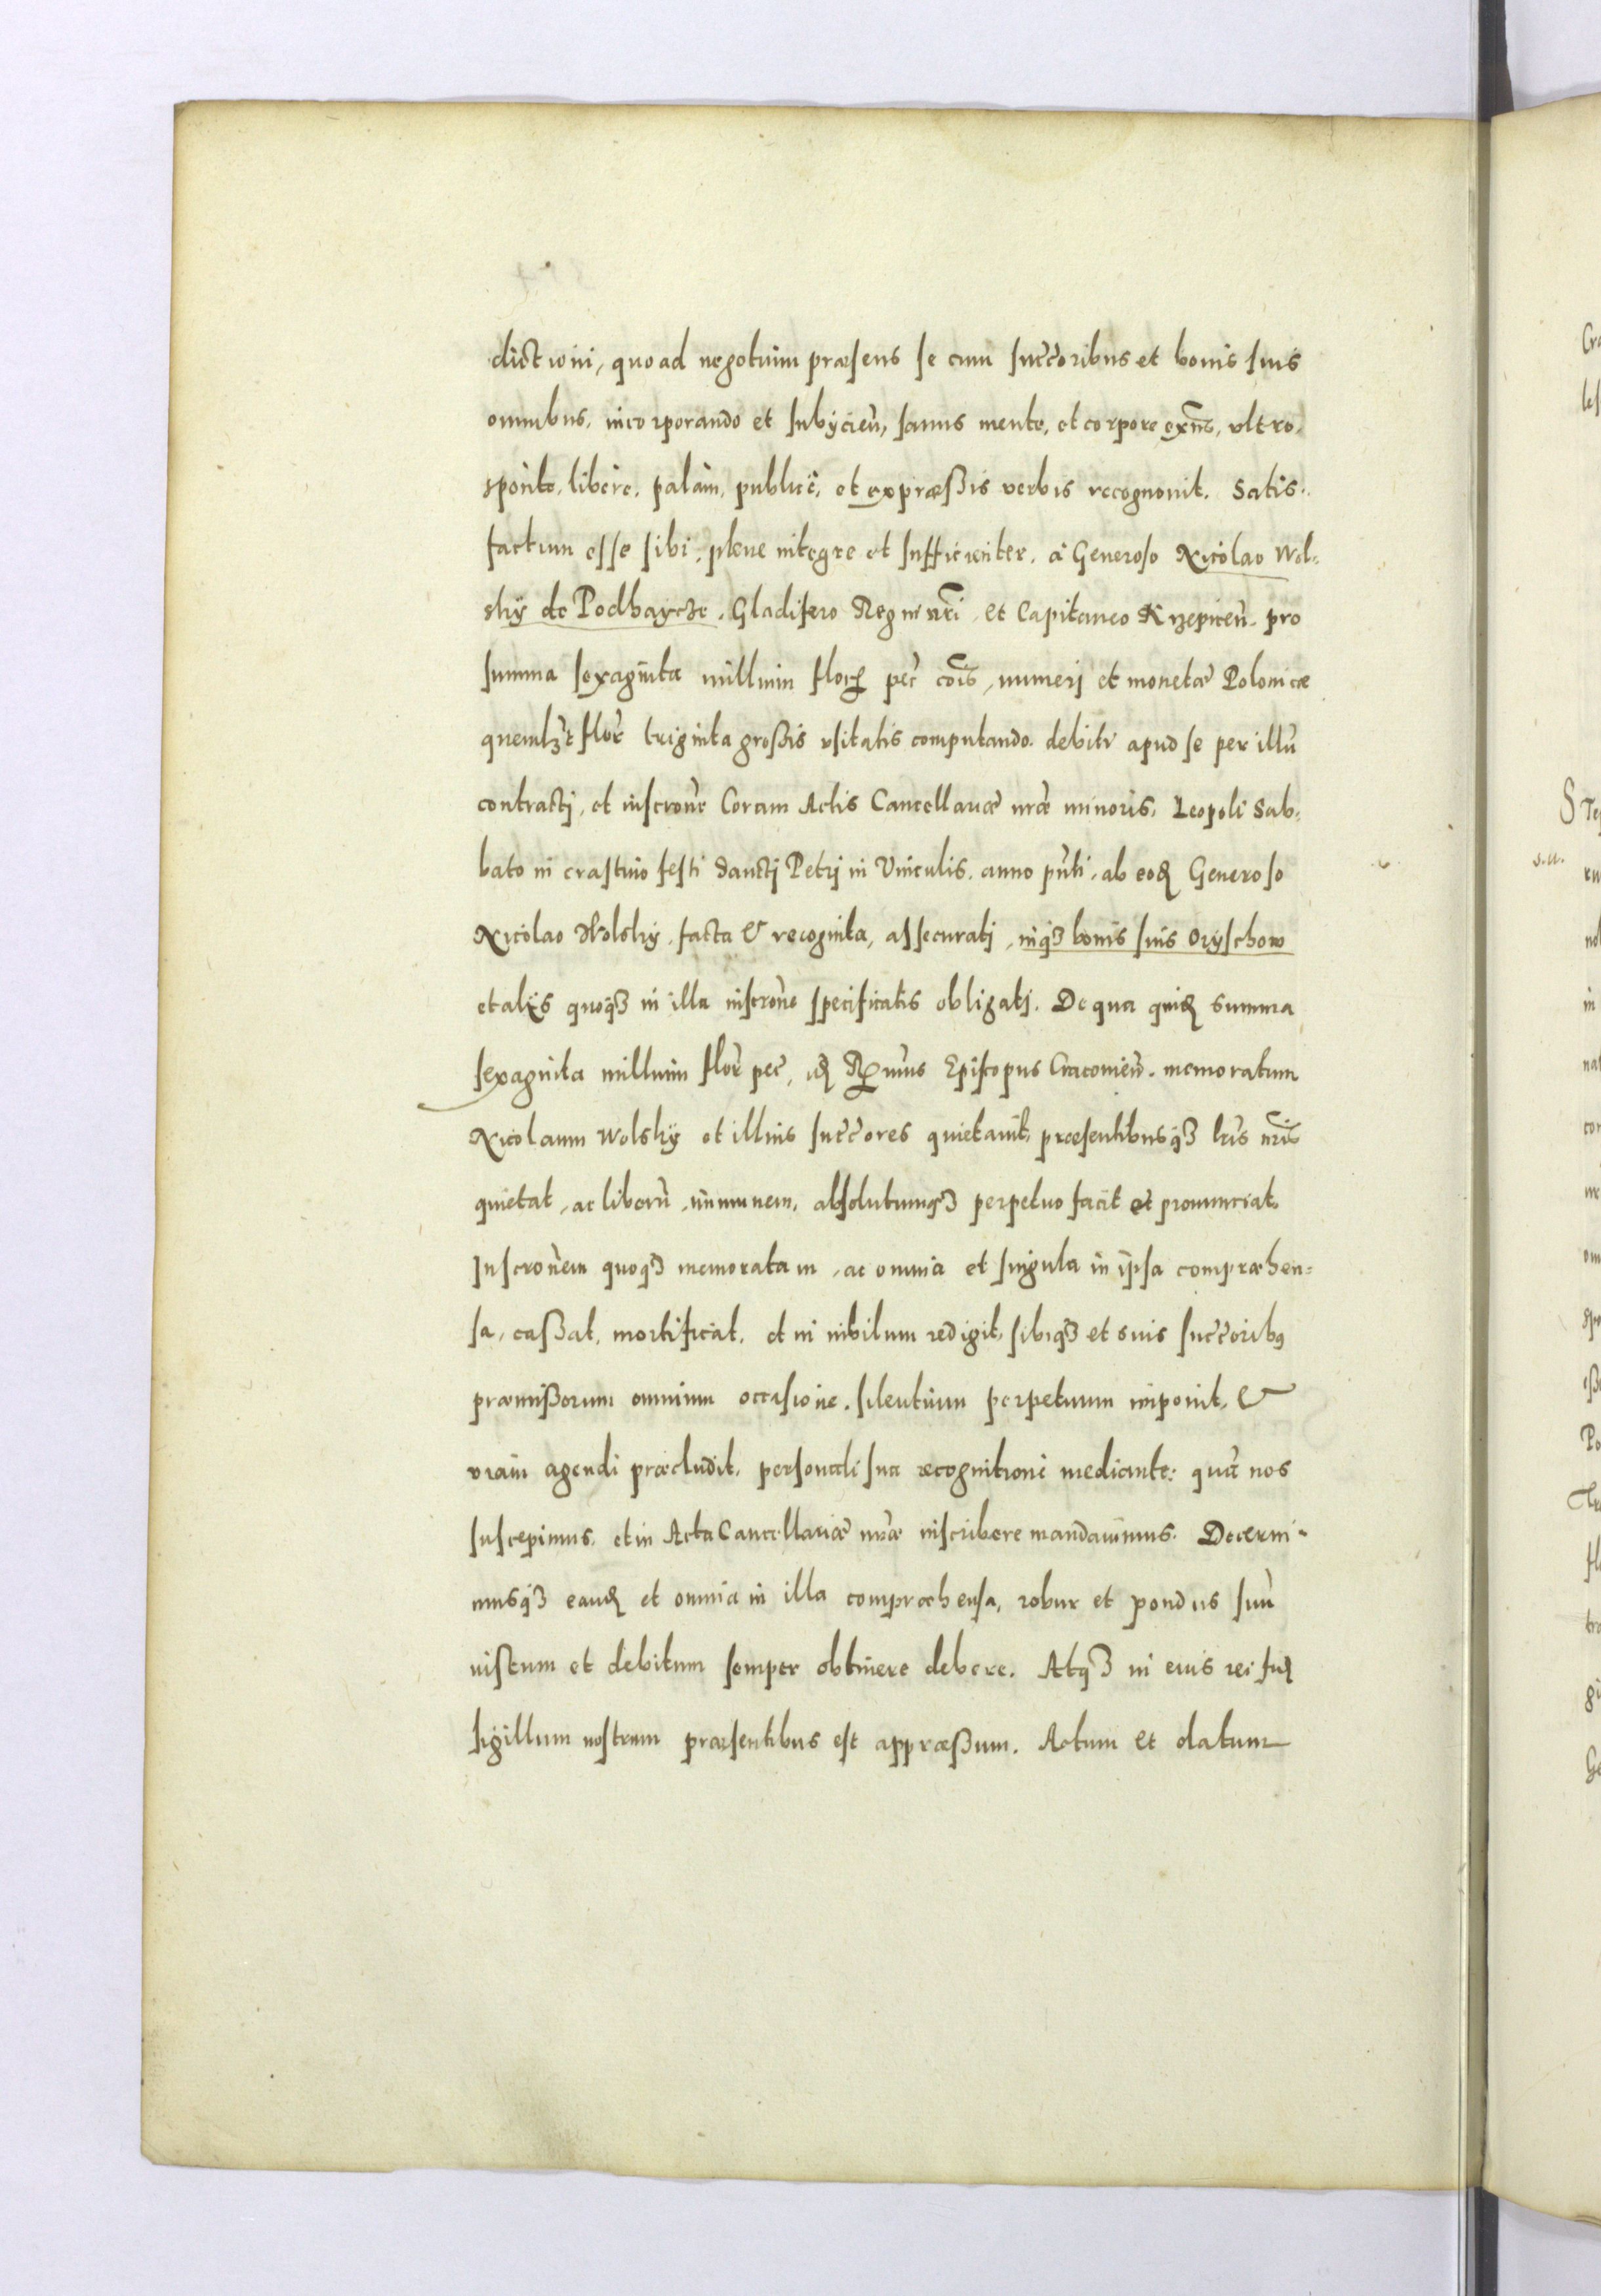 dictioni, quoad negotium præsens se cum succ̃oribus et bonis suis
omnibus, incorporando et subijcieñ, sanus mente, et corpore exñs, vltro,
sponte, libere, palàm, publicè, et expræßis verbis recognouit. Satis-
factum esse sibi, plene integre et sufficienter, à Generoso Nicolao Wol-
sky de Podhaycze, Gladifero Regni nr̃i, et Capitaneo Krzepiceñ. pro
summa sexaginta millium floꝝ pec̃ cõis, numerj et monetæ Polonicæ
quemlꝫt flor̃ triginta großis vsitatis computando. debiti apud se per illũ
contractj, et inscrõne Coram Actis Cancellariæ nr̃æ minoris, Leopoli Sab-
bato in crastino festi Sanctj Petrj in Vinculis, anno pñti, ab eoꝺ Generoso
Nicolao Wolsky, facta & recognita, assecuratj, inqꝫ bonis suis Oryschow
et alijs quoqꝫ in illa inscrõne specificatis obligatj. De qua quiꝺ summa
sexaginta millium flor̃ pec̃, iꝺ Rm̃us Episcopus Cracouieñ. memoratum
Nicolaum Wolsky et illius succ̃ores quietauit, præsentibusqꝫ lr̃is nr̃is
quietat, ac liberũ, immunem, absolutumqꝫ perpetuo facit et pronunciat.
Inscrõnem quoqꝫ memoratam, ac omnia et singula in ipsa compræhen-
sa, caßat, mortificat, et in nihilum redigit, sibiqꝫ et suis succ̃oribꝰ
præmißorum omnium occasione, silentium perpetuum imponit, &
viam agendi præcludit, personali sua recognitione mediante: quã nos
suscepimus, et in Acta Cancellariæ nr̃æ inscribere mandauimus. Decerni-
musqꝫ eanꝺ et omnia in illa compræhensa, robur et pondus suũ
iustum et debitum semper obtinere debere. Atqꝫ in eius rei fiꝺ
sigillum nostrum præsentibus est appræßum. Actum et datum